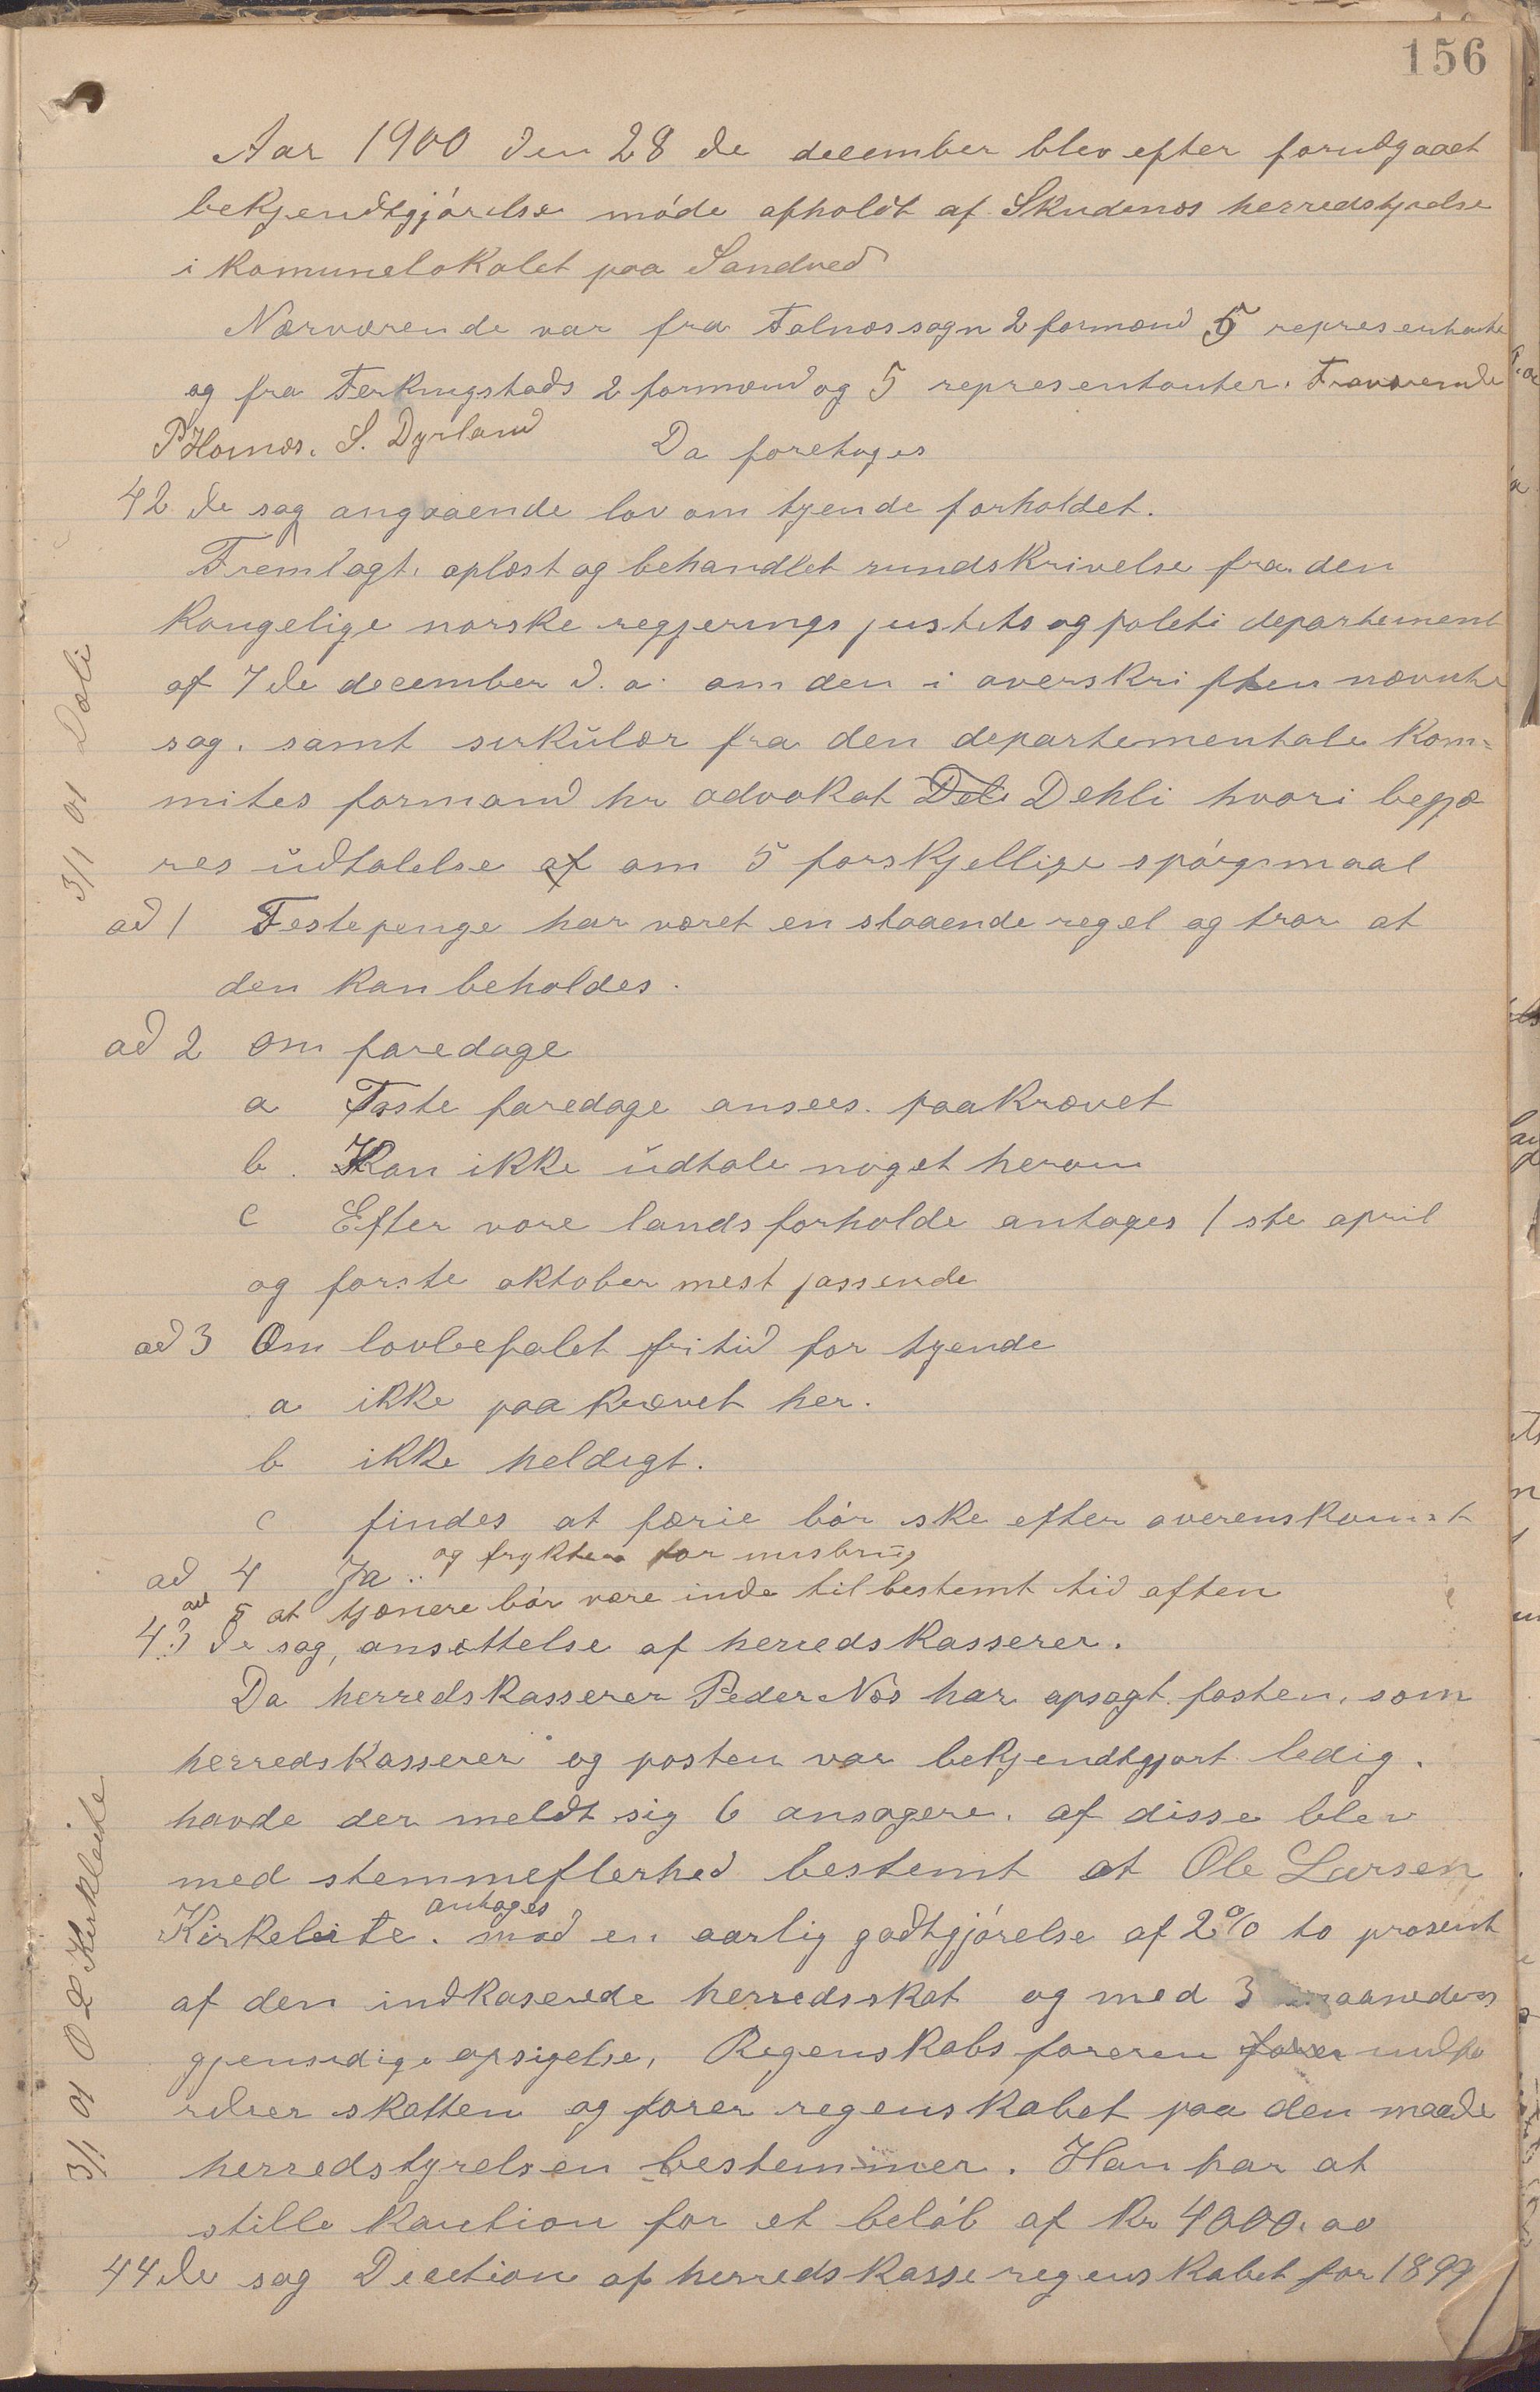 156
Aar 1900 den 28 de december blev efter forudgaaet
bekjendtgjórelse móde afholdt af Skudenæs herredstyrelse
i komunelokalet paa Sandved
Nærværende var fra Falnæs sogn 2 formænd 5 represent
og fra Ferkingstads 2 formænd og 5 representanter. Fraværende
P Hornæs. S. Dyrland Da foretages
42 de sag angaaende lov om tyende forholdet.
Fremlagt, oplæst og behandlet rundskrivelse fra den
kongelige norske regjerings justits og politi departement
af 7 de december d. a. om den i overskriften nævnte
sag. samt sirkulær fra den departementale kom=
mites formand hr advokat Dehli hvori begjæ
res udtalelse om 5 forskjellige spórgsmaal
ad 1 Festepenge har været en staaende regel og tror at
den kan beholdes.
ad 2 om faredage
a Faste faredage ansees paakrævet
b. Kan ikke udtale noget herom
c Efter vore landsforholde antages 1 ste april
og forste oktober mest passende
ad 3 Om lovbefalet fritid for tyende
a ikke paakrævet her.
b ikke heldigt.
c findes at færie bór ske efter overenskomst
ad 4 Ja .. og frykter for misbrug
ad 5 at tjænere bór være inde til bestemt tid aften
43 de sag, ansættelse af herredskasserer.
Da herredskasserer Peder Næs har opsagt posten, som
herredskasserer og posten var bekjendtgjort ledig.
havde der meldt sig 6 ansøgere. af disse blev
med stemmeflerhed bestemt at Ole Larsen
Kirkeleite. antages mod en aarlig godtgjórelse af 2% to prosent
af den indkaserede herredsskat og med 3 maaneders
gjensidige opsigelse, Regenskabs foreren indfo
rdrer skatten og forer regenskabet paa den maade
herredstyrelsen bestemmer. Han har at
stille kaution for et belób af Kr 4000.00
44 de sag Decition af herredskasseregenskabet for 1899
3/1 01 Dæli
3/1 01 O L Kirkleite